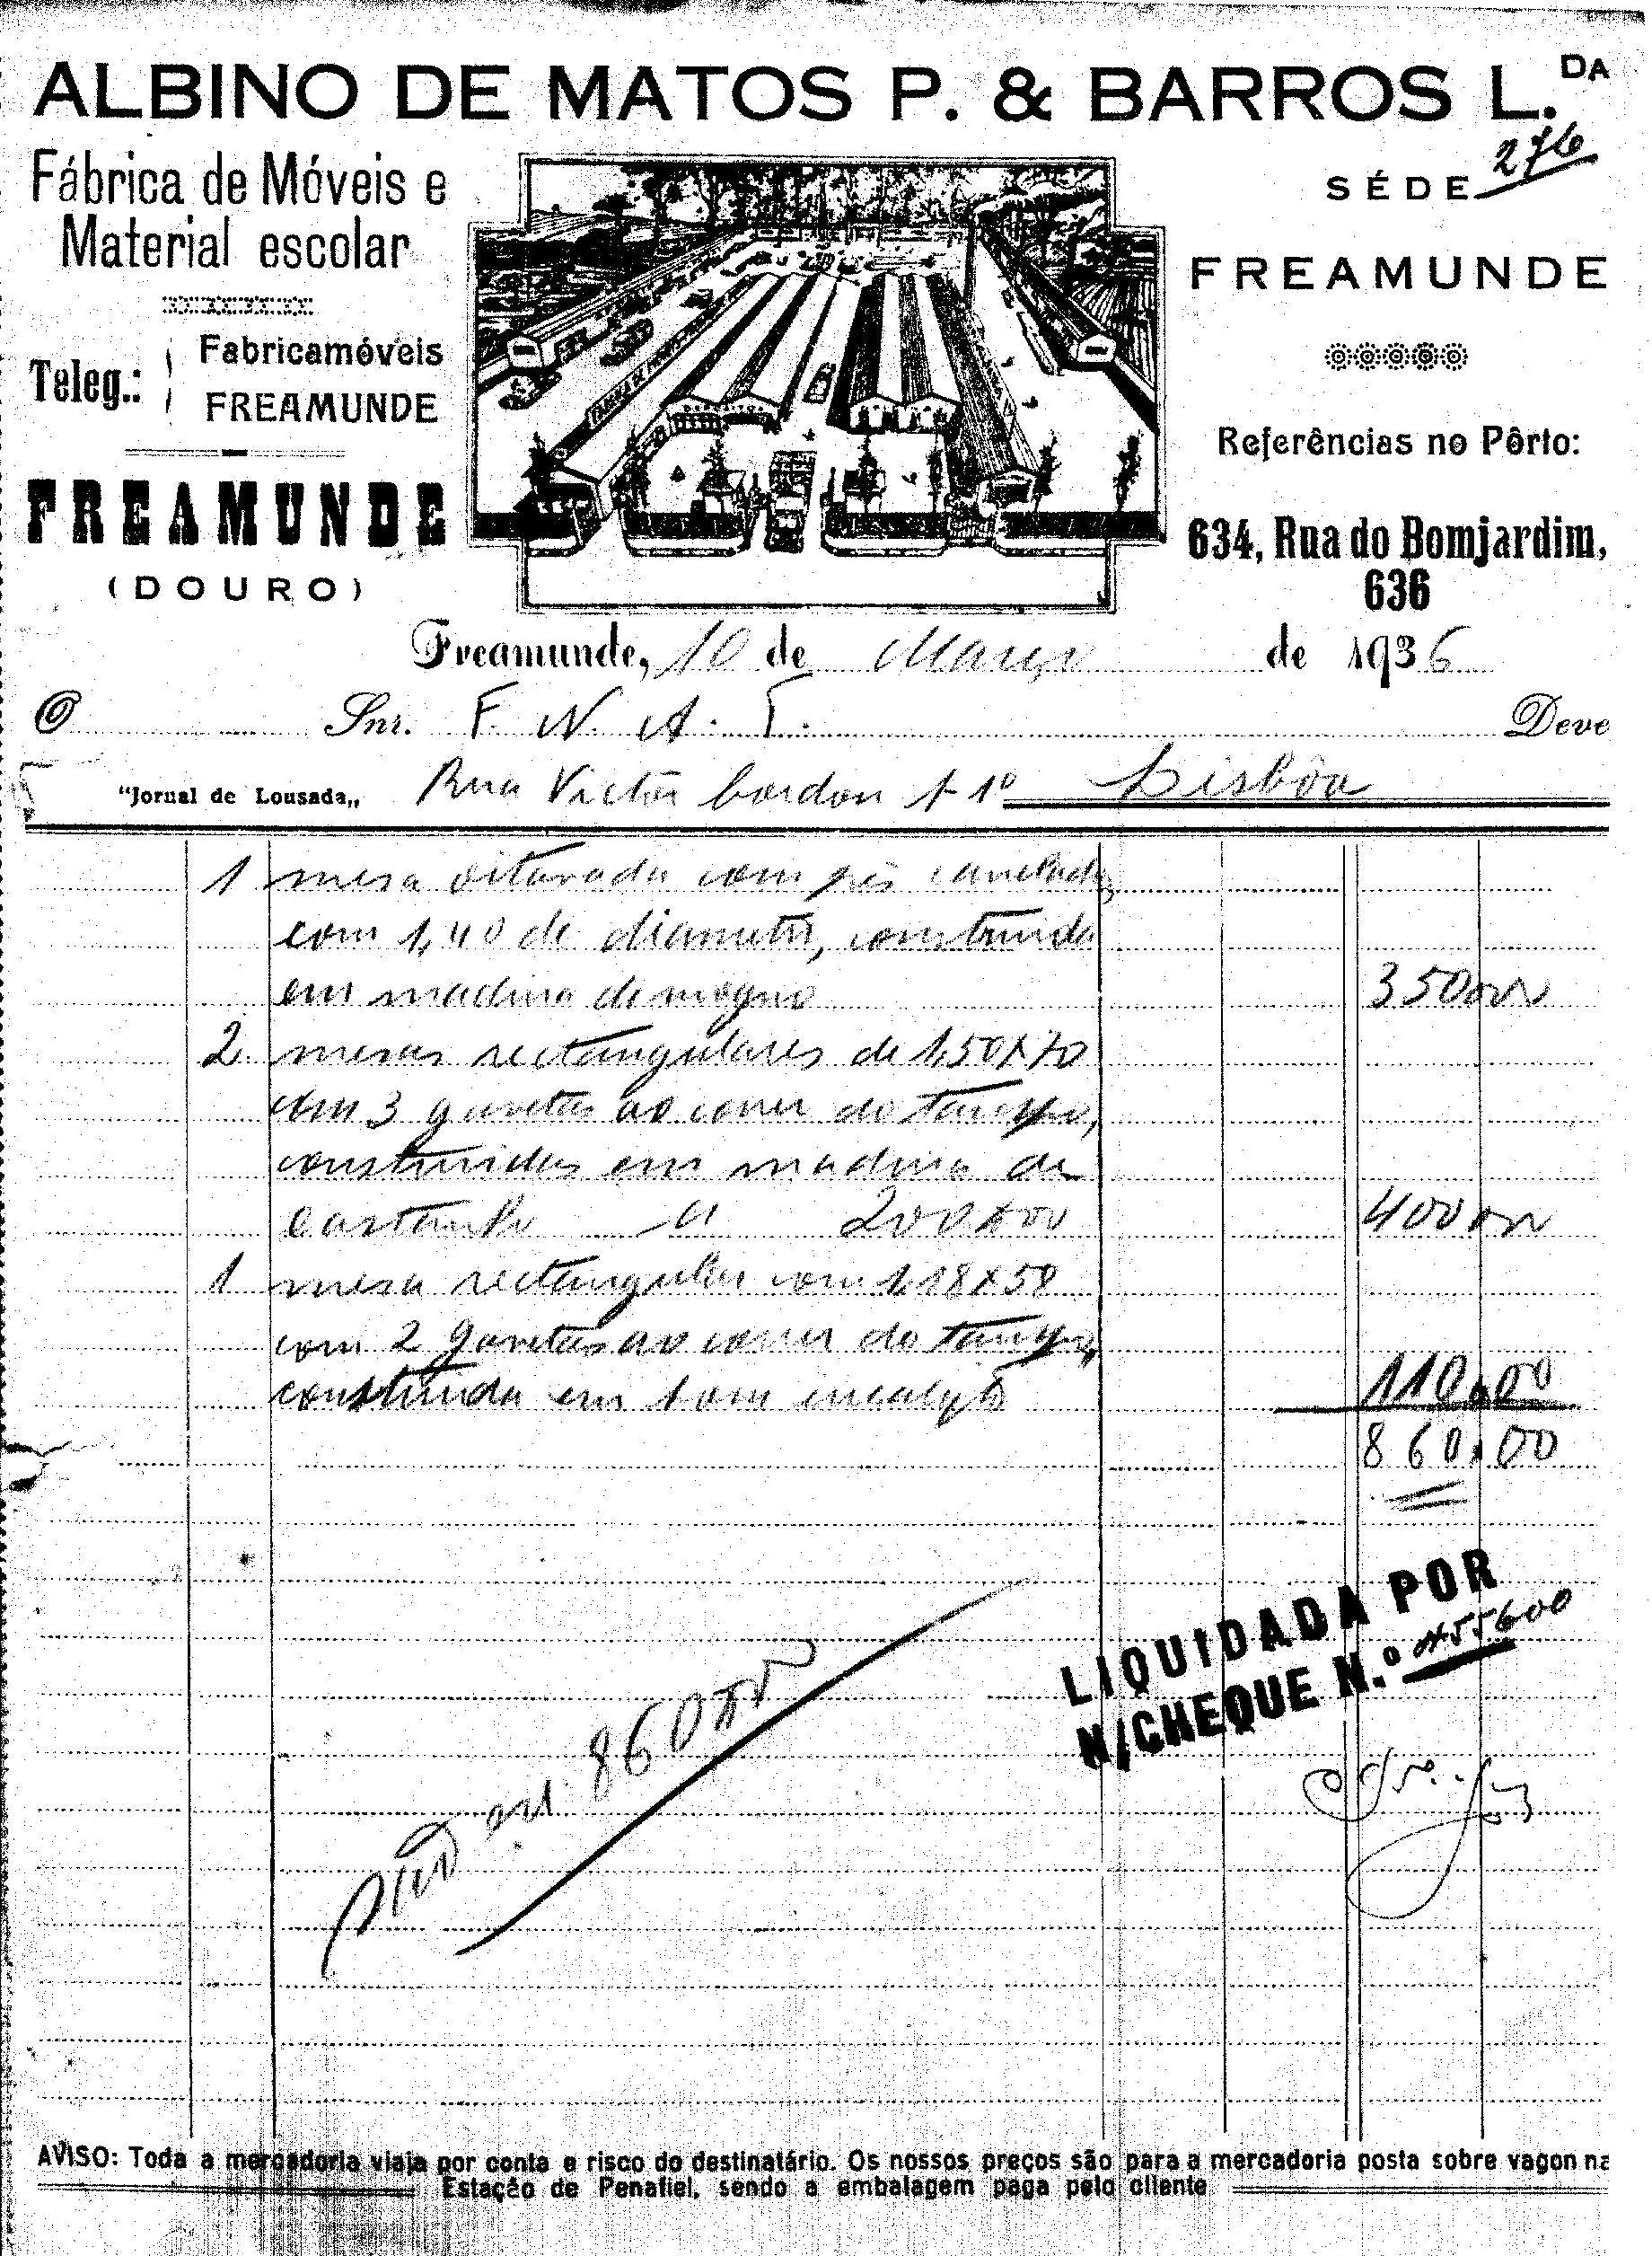 ALBINO DE MATOS P. & BARROS L.DA
Fábrica de Móveis e
Material escolar
Teleg.: Fabricamóveis
FREAMUNDE
FREAMUNDE
(DOURO)
276
SÉDE
FREAMUNDE
Referências no Pôrto:
634, Rua do Bomjardim,
636
Freamunde, 10 de Março de 1936
O Snr. F. N. A. T. Deve
"Jornal de Lousada„ Rua Victôr Cordon 1-1º Lisbôa
1 mesa oitavada com pés canelados,
com 1,40 de diametro, construida
em madeira de mogno 350$00
2 mesas rectangulares de 1,50x70
com 3 gavetas ao correr do tampo,
construidas em madeira de
castanho a 200$00 400$00
1 mesa rectangular com 1,18x50
com 2 gavetas ao correr do tampo,
construida em eucalyto 110$00
860$00
LIQUIDADA POR
N/CHEQUE N.º
em 860$00
AVISO: Toda a mercadoria viaja por conta e risco do destinatário. Os nossos preços são para a mercadoria posta sobre vagon na
Estação de Penafiel, sendo a embalagem paga pelo cliente